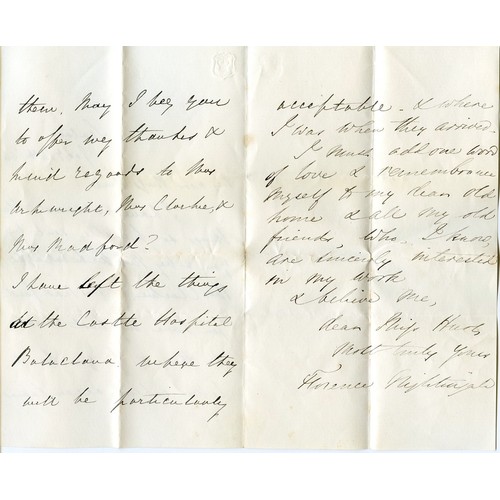 them. May I beg you
to offer my thanks &
kind regards to Mrs
Arkwright, Mrs Clarke, &
Mrs Madford?
I have left the things
at the Castle Hospital
Balaclava where they
will be particularly
acceptable - & where
I was when they arrived
I must add one word
of love & remembrance
myself to my dear old
home & all my old
friends, who, I know,
are sincerely interested
in my work
& believe me,
dear Miss Hurt,
most truly yours
Florence Nightingale